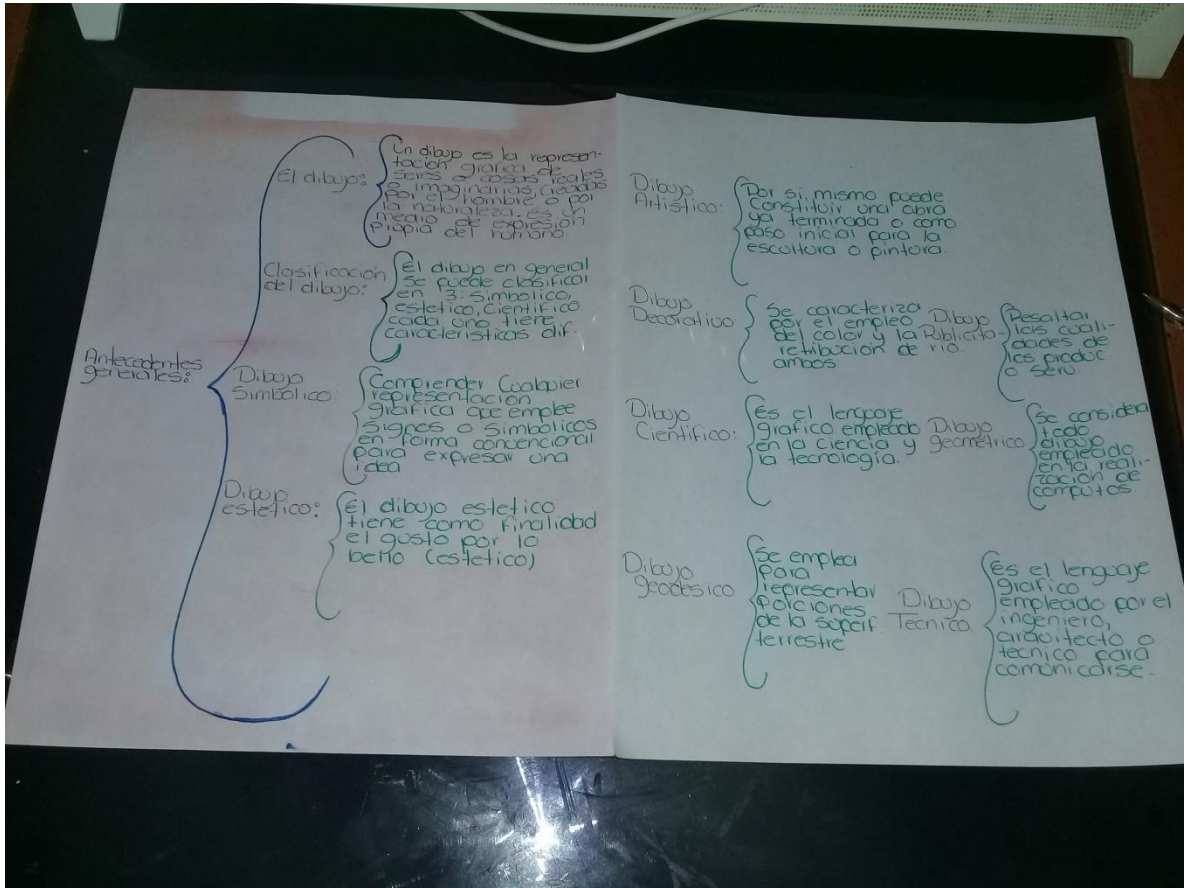 Antecedentes
generales:
El dibujo:
Un dibujo es la represen-
tación grafica de
seres o cosas reales
o imaginarias, creadas
por el hombre o por
la naturaleza. es un
medio de expresión
propia del humano
Clasificación
del dibujo:
El dibujo en general
se puede clasificar
en 3: simbolico,
estetico, cientifico
cada uno tiene
caracteristicas dif.
Dibujo
Simbolico:
Comprender Cualquier
representación
gráfica que emplee
signos o simbolicos
en forma convencional
para expresar una
idea
Dibujo
estetico:
El dibujo estetico
tiene como finalidad
el gusto por lo
bello (estetico)
Dibujo
Artistico:
Por si mismo puede
Constituir una obra
ya terminada o como
paso inicial para la
escultura o pintura.
Dibujo
Decorativo
Se caracteriza
por el empleo
del color y la
retibución de
ambos
Dibujo
Publicita-
rio.
Resaltar
las cuali-
dades de
los produc.
o serv
Dibujo
Cientifico:
es el lenguaje
grafico empleado
en la ciencia y
la tecnología.
Dibujo
geometrico
Se considera
todo
dibujo
empleado
en la reali-
zación de
computos.
Dibujo
geodesico
Se emplea
para
representar
porciones
de la superf.
terrestre
Dibujo
Tecnico.
es el lenguaje
grafico
empleado por el
ingeniero,
arquitecto o
tecnico para
comunicarse.